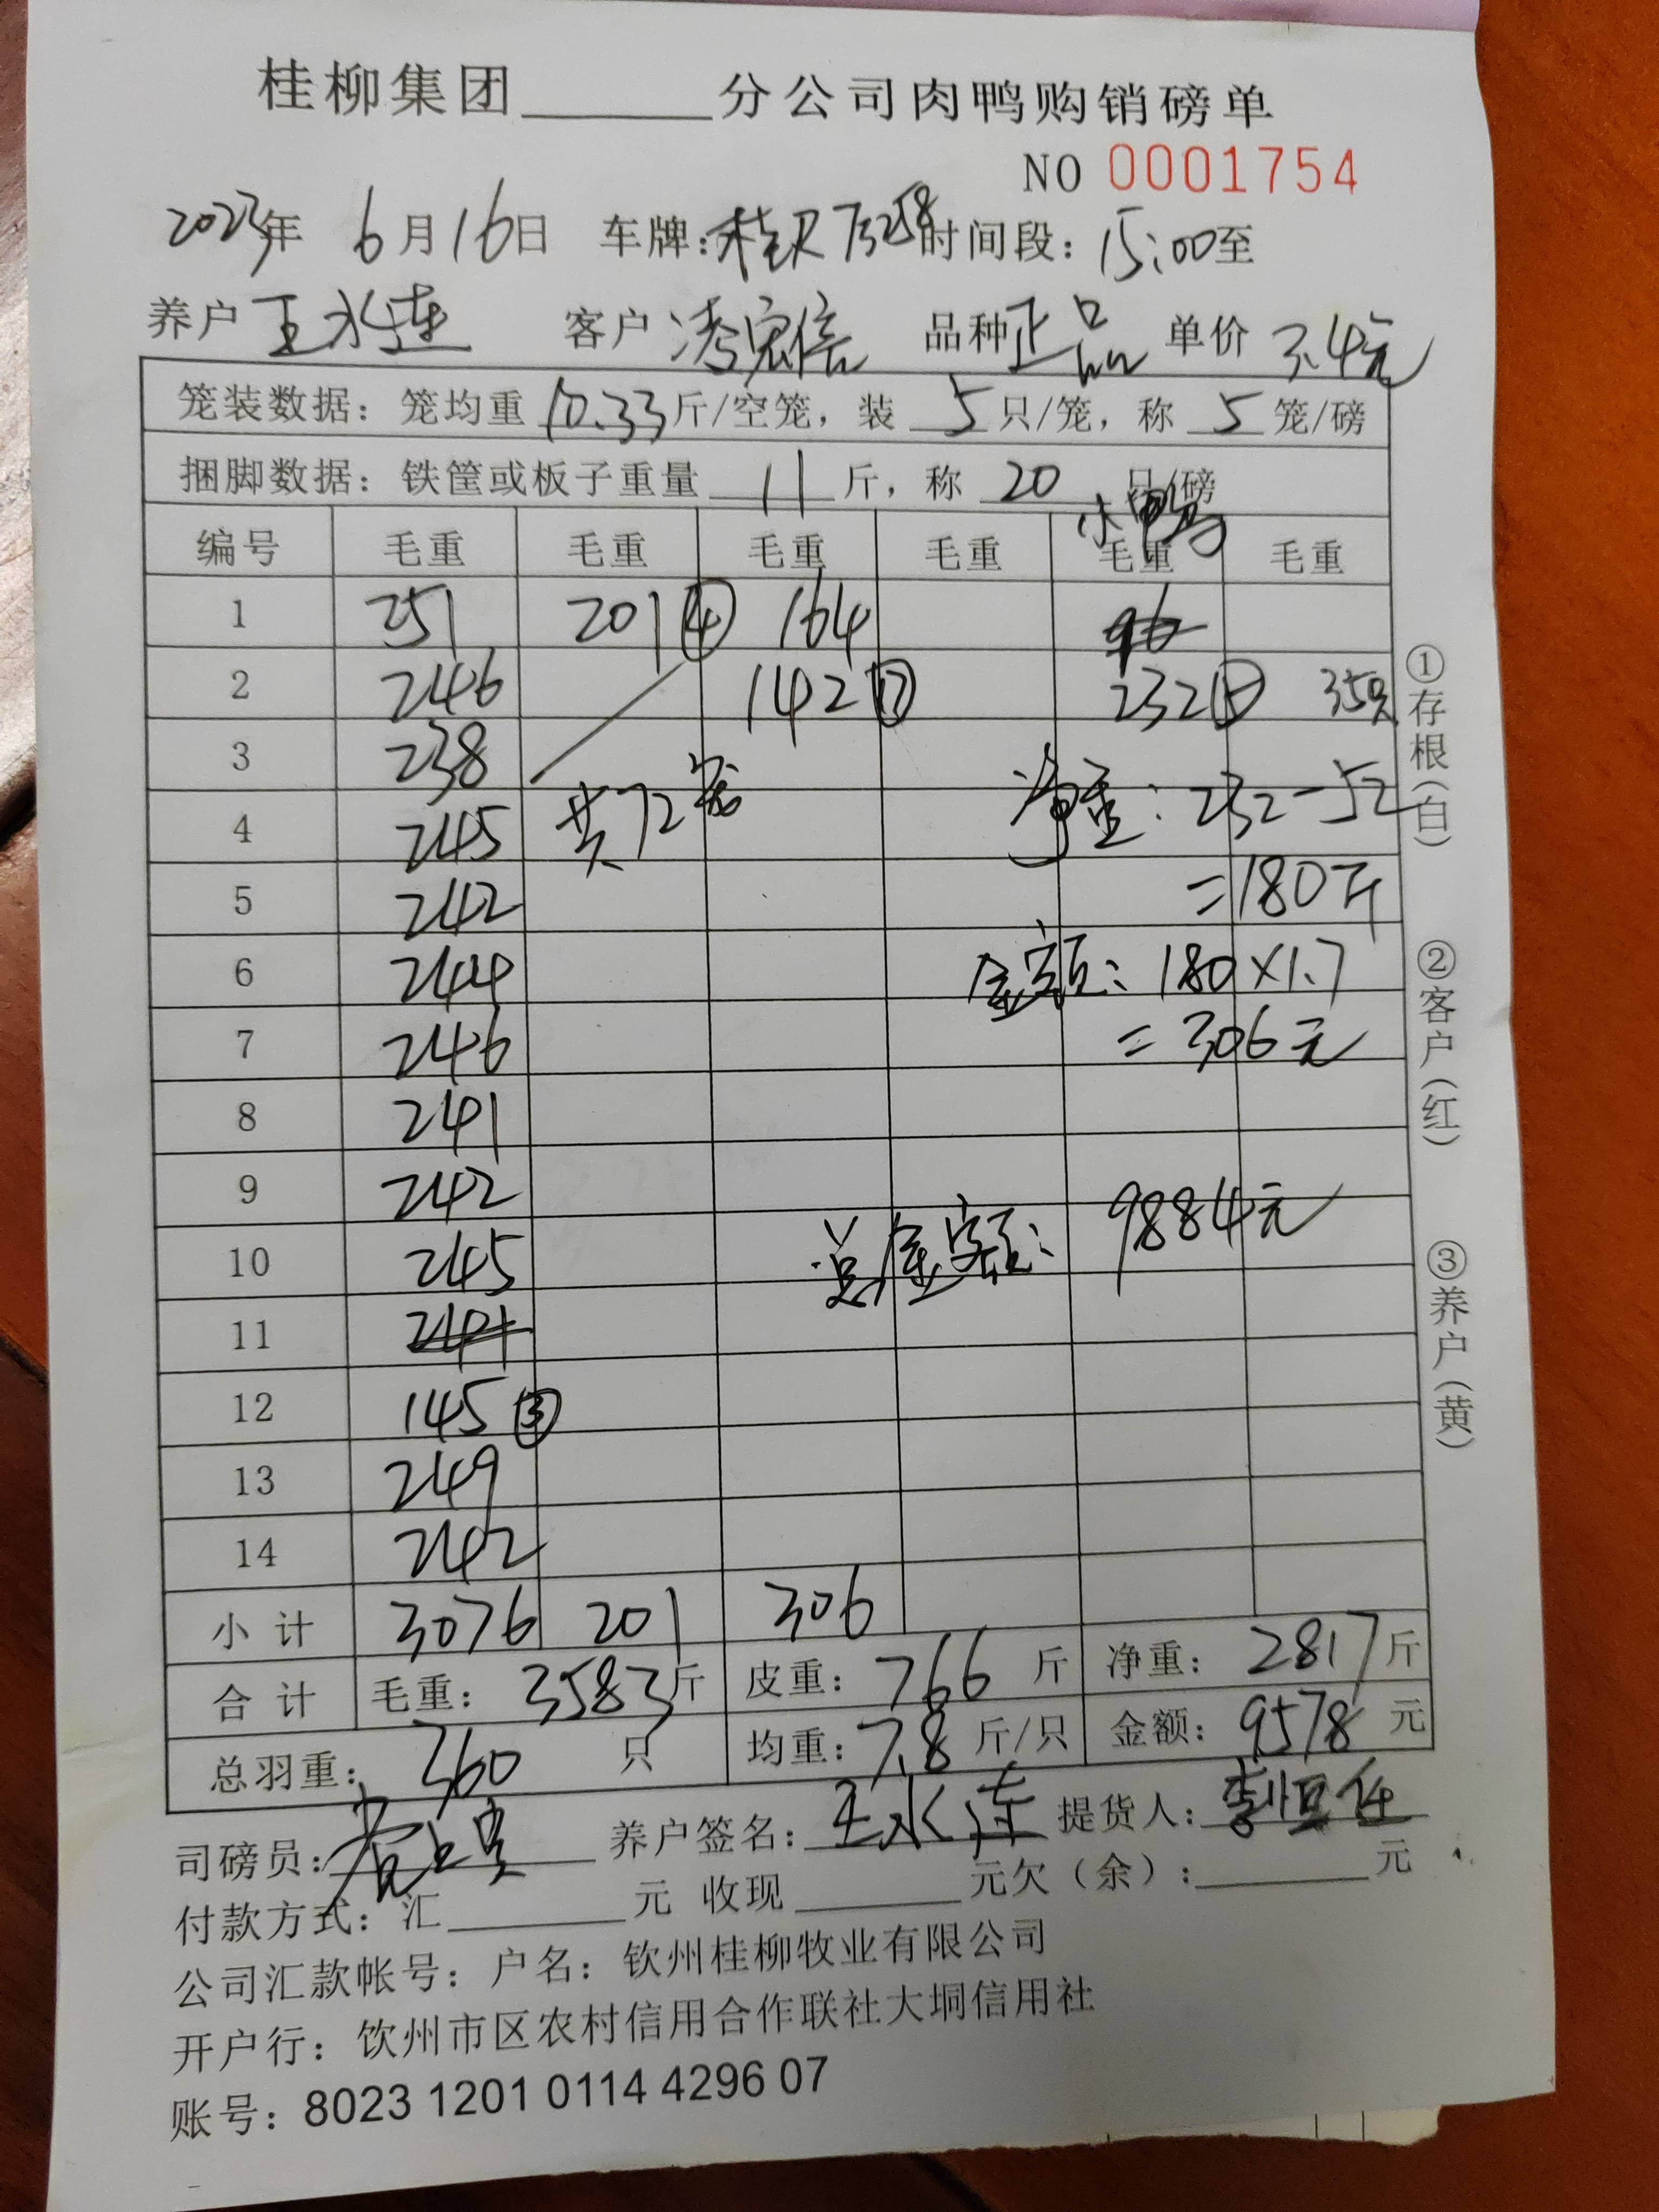 桂柳集团______分公司肉鸭购销磅单
NO 0001754
2023年 6月16日 车牌:桂R73258 时间段: 15:00至
养户 王水连 客户 凌宏信 品种 正品 单价 3.4元
笼装数据: 笼均重 10.33 斤/空笼, 装 5 只/笼, 称 5 笼/磅
捆脚数据: 铁筐或板子重量 11 斤, 称 20 只/磅
小鸭
编号 毛重 毛重 毛重 毛重 毛重 毛重
1 251 201④ 164 96
2 246 142⑦ 232⑤ 35只
3 238
净重: 232-52
4 245 共72笼
5 242 =180斤
6 244 金额: 180×1.7
7 246 =306元
8 241
9 242
总金额: 9884元
10 245
11 241
12 145③
13 249
14 242
小计 3076 201 306
合计 毛重: 3583斤 皮重: 766 斤 净重: 2817斤
总羽重: 360 只 均重: 7.8 斤/只 金额: 9578 元
司磅员: 养户签名: 王水连 提货人: 李恒任
付款方式: 汇______元 收现______元欠(余):______元
公司汇款帐号: 户名: 钦州桂柳牧业有限公司
开户行: 钦州市区农村信用合作联社大垌信用社
账号: 8023 1201 0114 4296 07
①存根(白)
②客户(红)
③养户(黄)